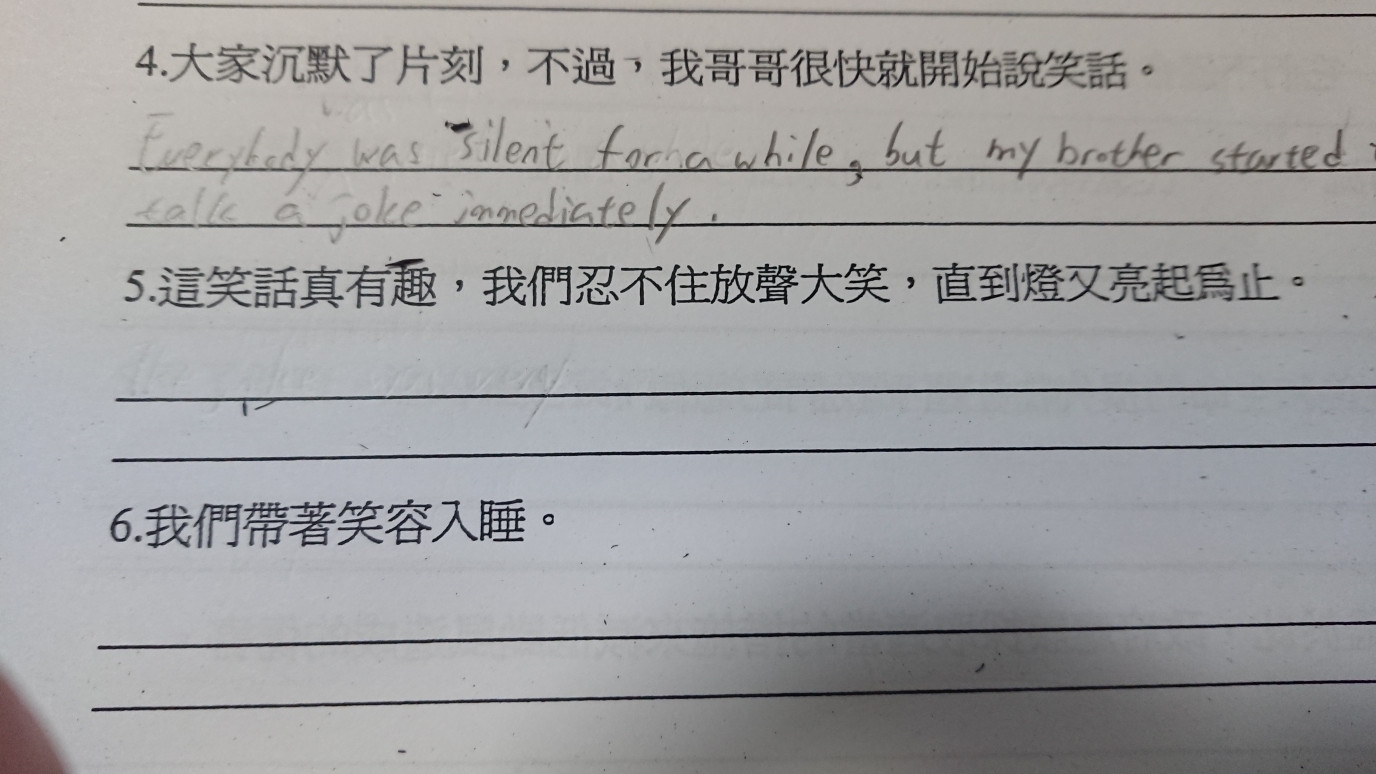 4.大家沉默了片刻，不過，我哥哥很快就開始說笑話。
Everybody was silent for a while, but my brother started
talk a joke immediately.
5.這笑話真有趣，我們忍不住放聲大笑，直到燈又亮起爲止。
6.我們帶著笑容入睡。